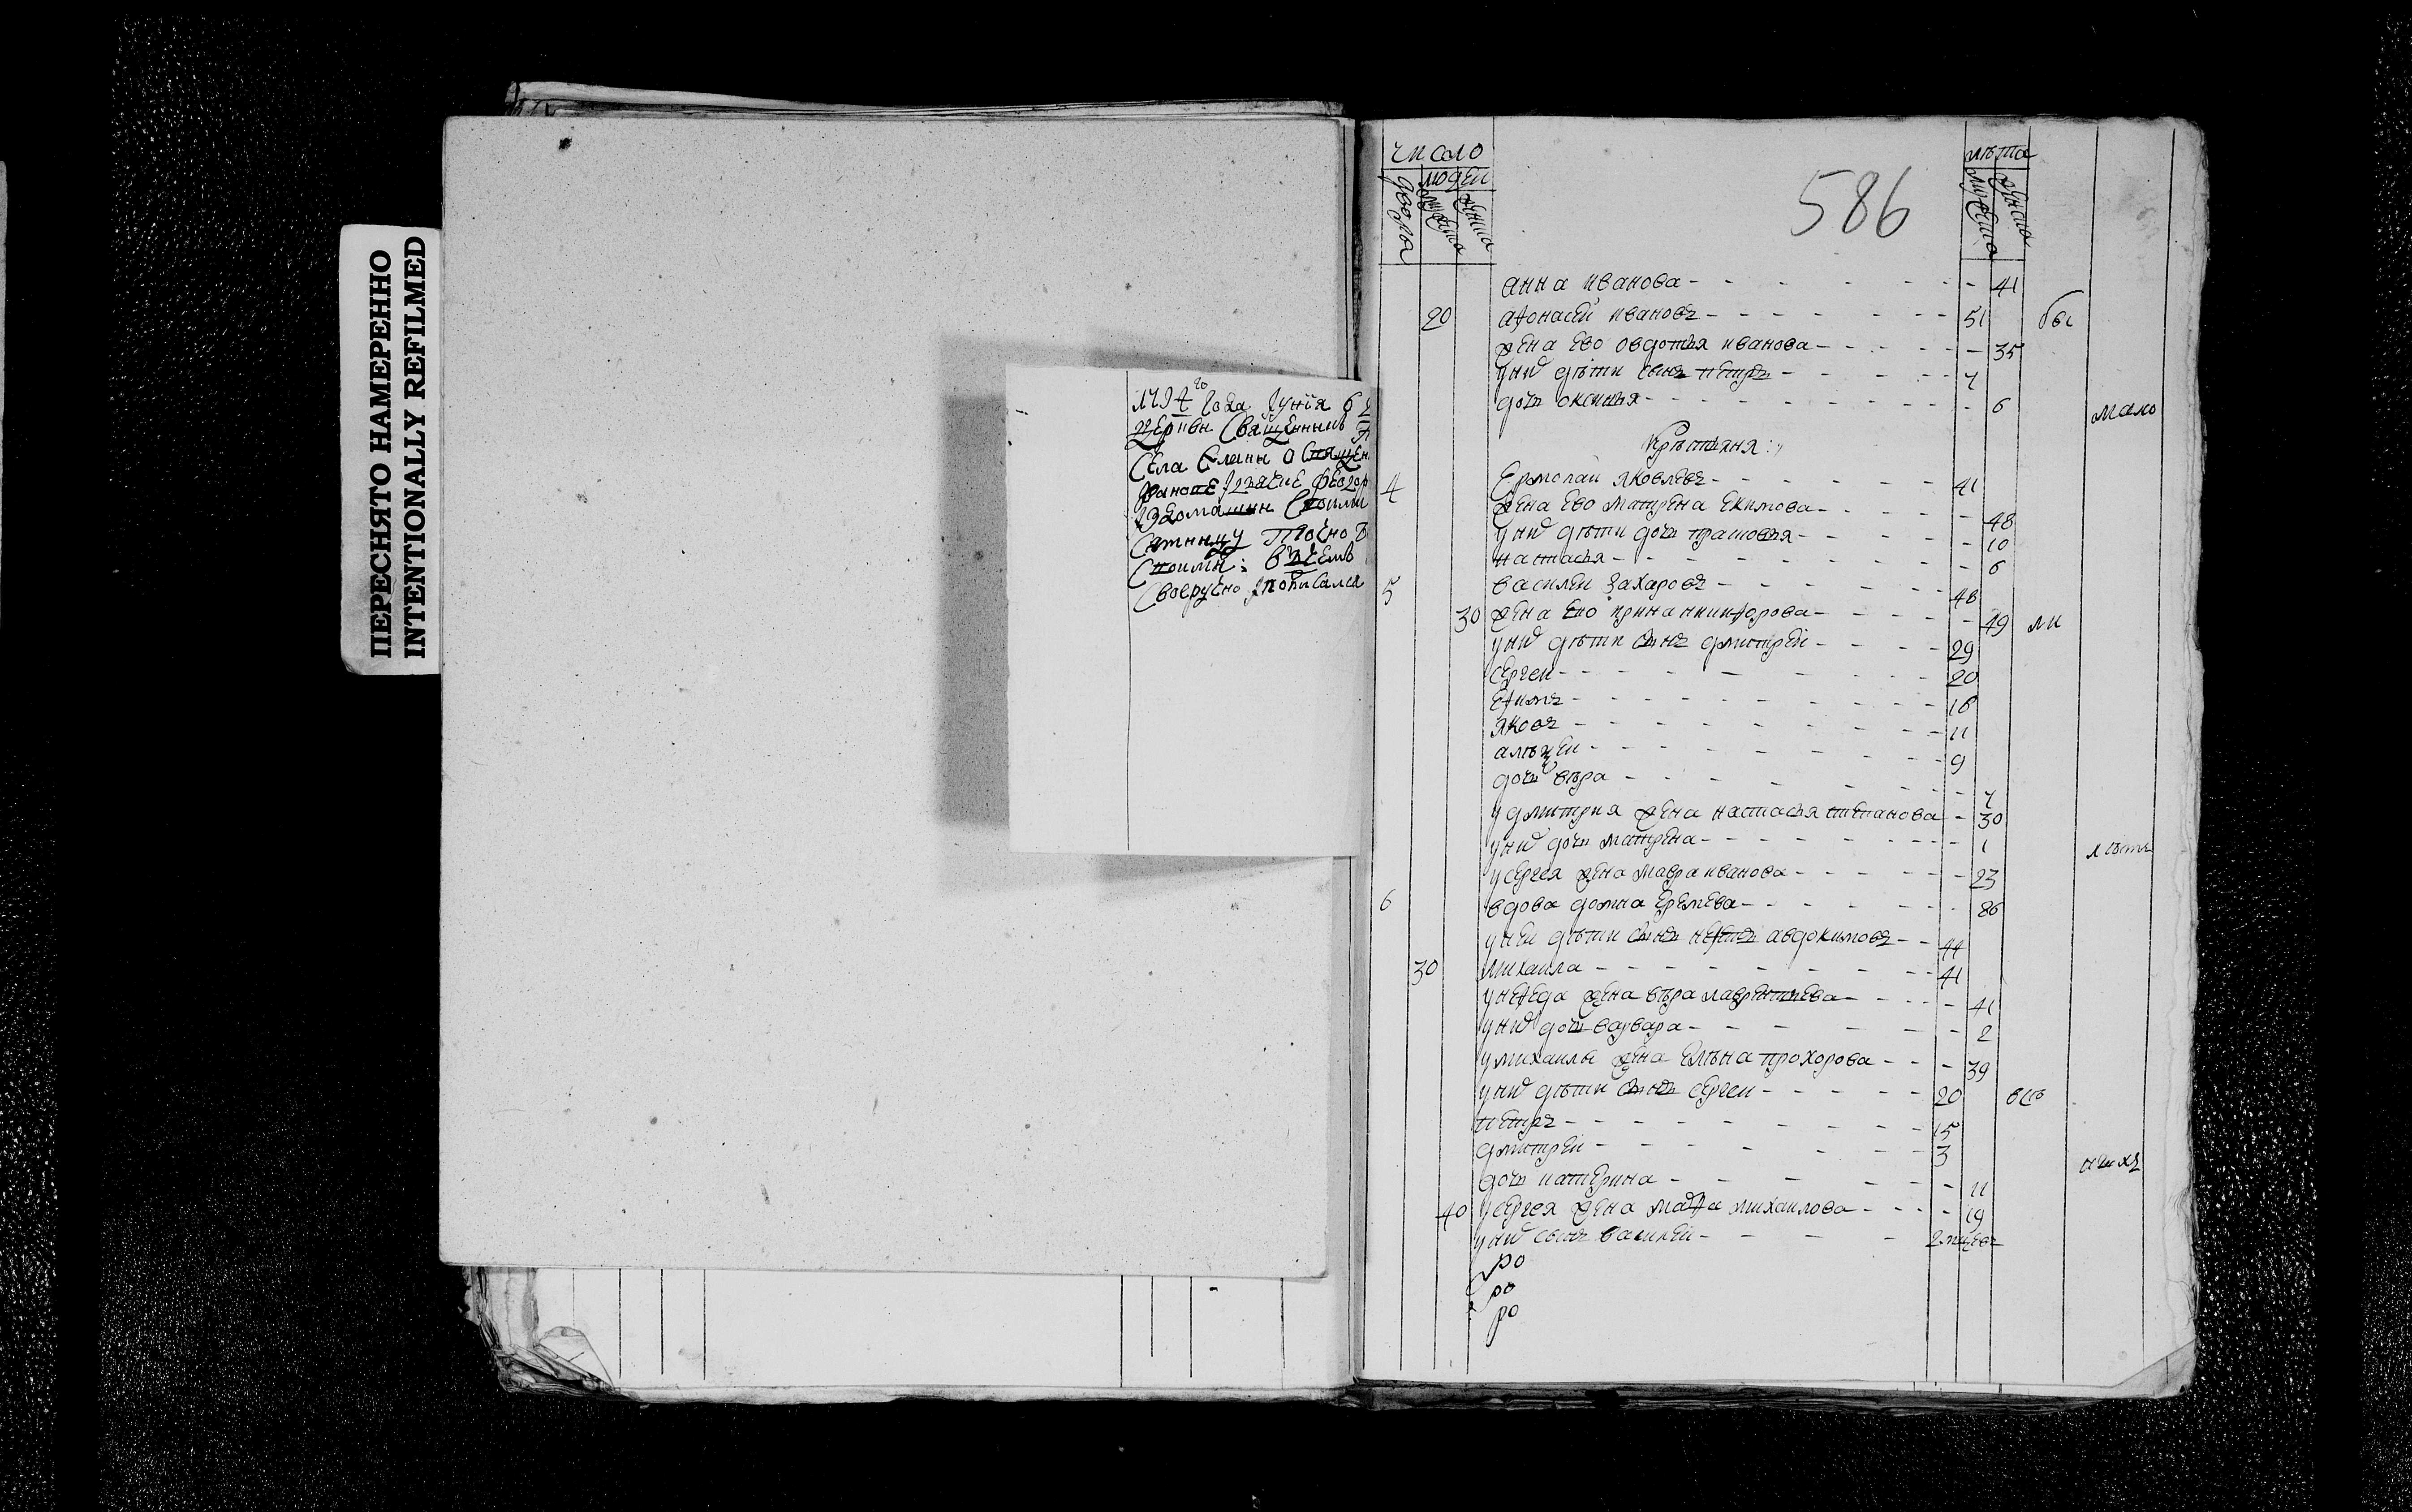 ПЕРЕСНЯТО НАМЕРЕННО
INTENTIONALLY REFILMED
года Іуния
Церкви Священникъ
Села
Своеручно подписался
число
людеи
двора
мужеска
женска
586
лѣта
мужеска
женска
анна иванова - 41
20 афонасеи ивановъ - 51 бы
жена ево овдотья иванова - 35
у них дѣти сынъ петръ - 7
дочь оксинья - 6
мало
Крѣстьяня:
4 Ермолаи яковлевъ - 41
жена ево матрена екимова - 48
у них дѣти дочь прасковья - 10
настасья - 6
5 василеи захаровъ - 48
30 жена ево ирина никифорова - 49 ли
у них дѣти сынъ дмитреи - 29
сергеи - 20
ефимъ - 16
яковъ - 11
алѣѯеи - 9
дочь вѣра - 7
у дмитрия жена настасья степанова - 30
у них дочь матрена - 1
лѣтъ
у сергея жена мавра иванова - 23
6 вдова домна еремева - 86
у неи дѣти сынъ нефедъ авдокимовъ - 44
30 михаила - 41
у нефеда жена вѣра лаврентьева - 41
у них дочь варвара - 2
у михаилы жена елѣна прохорова - 39
у них дѣти сынъ сергеи - 20 всѣ
петръ - 15
дмитреи - 3
дочь катерина - 11
40 у сергея жена марфа михаилова - 19
у них сынъ василеи - 2 мцевъ
ро
ро
ро